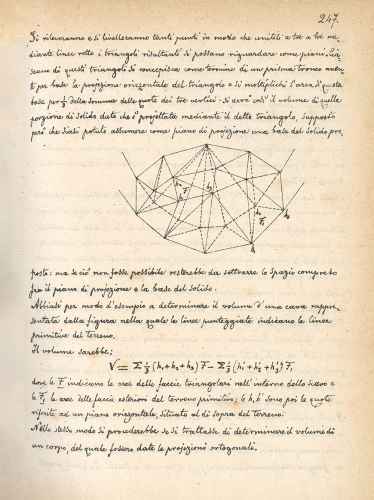 247.
Si rileveranno e si livelleranno tanti punti in modo che unitili a tre a tre me-
diante linee rette i triangoli risultanti si possano riguardare come piani. Cia-
scuno di questi triangoli si concepisca come termine di un prisma tronco aven-
te per base la projezione orizzontale del triangolo e si moltiplichi l'area di questa
base per ⅓ della somma delle quote dei tre vertici. Si avrà così il volume di quella
porzione di solido dato che è projettata mediante il detto triangolo, supposto
però che siasi potuto assumere come piano di projezione una base del solido pro-
h₁ h₂ F h₃ h'₁ F₁ h'₂ h'₃
posto: ma se ciò non fosse possibile resterebbe da sottrarre lo spazio compreso
fra il piano di projezione e la base del solido.
Abbiasi per modo d'esempio a determinare il volume d'una cava rappre-
sentata dalla figura nella quale le linee punteggiate indicano le linee
primitive del terreno.
Il volume sarebbe:
V = Σ ⅓ (h₁ + h₂ + h₃) F − Σ ⅓ (h'₁ + h'₂ + h'₃) F₁
dove le F indicano le aree delle faccie triangolari nell'interno dello scavo e
le F₁ le aree delle faccie esteriori del terreno primitivo; le h, h' sono poi le quote
riferite ad un piano orizzontale, situato al di sopra del terreno.
Nello stesso modo si procederebbe se si trattasse di determinare il volume di
un corpo, del quale fossero date le projezioni ortogonali.